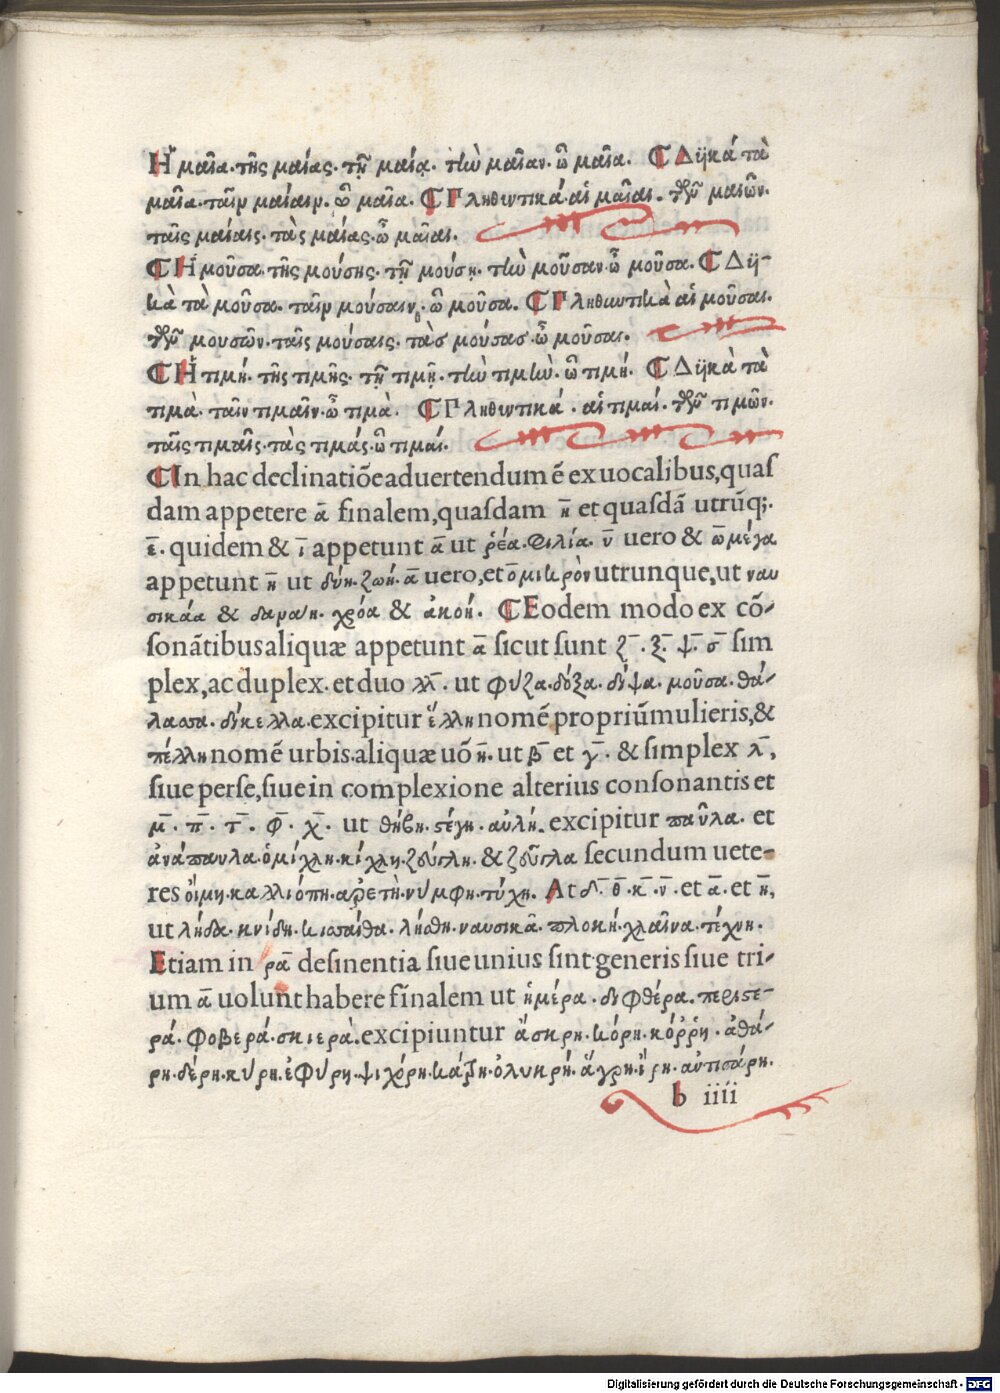 Ἡ μαῖα. τῆς μαίας. τῇ μαίᾳ. τὴν μαῖαν. ὦ μαῖα. ¶ Δϋικά τὰ
μαία. ταῖν μαίαιν. ὦ μαία. ¶ Πληθυντικά. αἱ μαῖαι. τῶν μαιῶν.
ταῖς μαίαις. τὰς μαίας. ὦ μαῖαι.
¶ Ἡ μοῦσα. τῆς μούσης. τῇ μούσῃ. τὴν μοῦσαν. ὦ μοῦσα. ¶ Δϋι-
κὰ τὰ μοῦσα. ταῖν μούσαιν. ὦ μοῦσα. ¶ Πληθυντικὰ αἱ μοῦσαι.
τῶν μουσῶν. ταῖς μούσαις. τὰσ μούσασ. ὦ μοῦσαι.
¶ Ἡ τιμή. τῆς τιμῆς. τῇ τιμῇ. τὴν τιμὴν. ὦ τιμή. ¶ Δϋικὰ τὰ
τιμὰ. ταῖν τιμαῖν. ὦ τιμὰ. ¶ Πληθυντικά. αἱ τιμαί. τῶν τιμῶν.
ταῖς τιμαῖς. τὰς τιμάς. ὦ τιμαί.
¶ In hac declinatiõe aduertendum ē ex uocalibus, quaſ
dam appetere ᾱ finalem, quaſdam η̄ et quaſdã utrũq;.
ε̄. quidem & ῑ appetunt ᾱ ut ῥέα. φιλία. ῡ uero & ω̄ μέγα
appetunt η̄ ut δύη. ζωή. ᾱ uero, et ο̄ μικρὸν utrunque, ut ναυ
σικάα & δαναη. χρόα & ἀκοή. ¶ Eodem modo ex cõ-
ſonãtibus aliquæ appetunt ᾱ ſicut ſunt ζ̄. ξ̄. ψ̄. σ̄ ſim
plex, ac duplex. et duo λλ̄. ut φύζα. δόξα. δίψα. μοῦσα. θά-
λασσα. δίκελλα. excipitur ἕλλη nomē propriũ mulieris, &
πέλλη nomē urbis. aliquæ uõ η̄. ut β̄ et γ̄. & ſimplex λ̄,
ſiue per ſe, ſiue in complexione alterius conſonantis et
μ̄. π̄. τ̄. φ̄. χ̄. ut θήβη. στέγη. αὐλή. excipitur παῦλα. et
ἀνάπαυλα. ὁμίχλη. κίχλη. ζεύγλη. & ζεῦγλα ſecundum uete-
res οἴμη. καλλιόπη. αρετὴ. νυμφη. τύχη. At δ̄. θ̄. κ̄. ν̄. et ᾱ. et η̄,
ut λήδα. κνίδη. κισσαίθα. λήθη. ναυσικᾶ. πλοκή. χλαῖνα. τέχνη.
Etiam in ρᾱ deſinentia ſiue unius ſint generis ſiue tri-
um ᾱ uolunt habere finalem ut ἡμέρα. διφθέρα. περιστε-
ρά. φοβερά. σκιερὰ. excipiuntur ἄσκρη. κόρη. κόῤῥη. ἀθά-
ρη. δέρη. κύρη. ἐφύρη. ψιχόρη. κάρη. ὀλυκρή. ἄγρη. ἴρη. αὐτισάρη.
b iiii
Digitalisierung gefördert durch die Deutsche Forschungsgemeinschaft - DFG